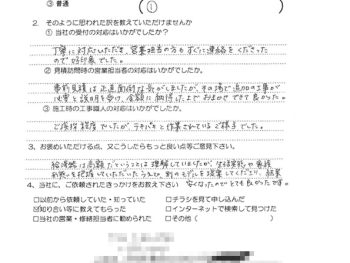 ③ 普通
( ① )
2. そのように思われた訳を教えていただけませんか
① 当社の受付の対応はいかがでしたか?
丁寧に対応いただき、営業担当の方もすぐに連絡をくださった
ので好印象でした。
② 見積訪問時の営業担当者の対応はいかがでしたか。
事前見積は正直面倒な気がしましたが、その場で追加の工事が
必要と説明を受け、金額に納得した上でおまかせできて良かった。
③ 施工時の工事職人の対応はいかがでしたか?
ご挨拶程度でしたが、テキパキと作業されているご様子でした。
3. お褒めいただける点、又こうしたらもっと良い点等ご意見下さい。
給湯器は高額だということは理解していましたが、生活実態や家族
を把握していただいたうえで、別のモデルを提案してくださり、結果
安くなったのでとても良かったです。
4. 当社に、ご依頼されたきっかけをお教え下さい
□以前から依頼していた・知っていた □チラシを見て申し込んだ
☑知り合い等に教えてもらった □インターネットで検索して見つけた
□当社の営業・修繕担当者に勧められた □その他(